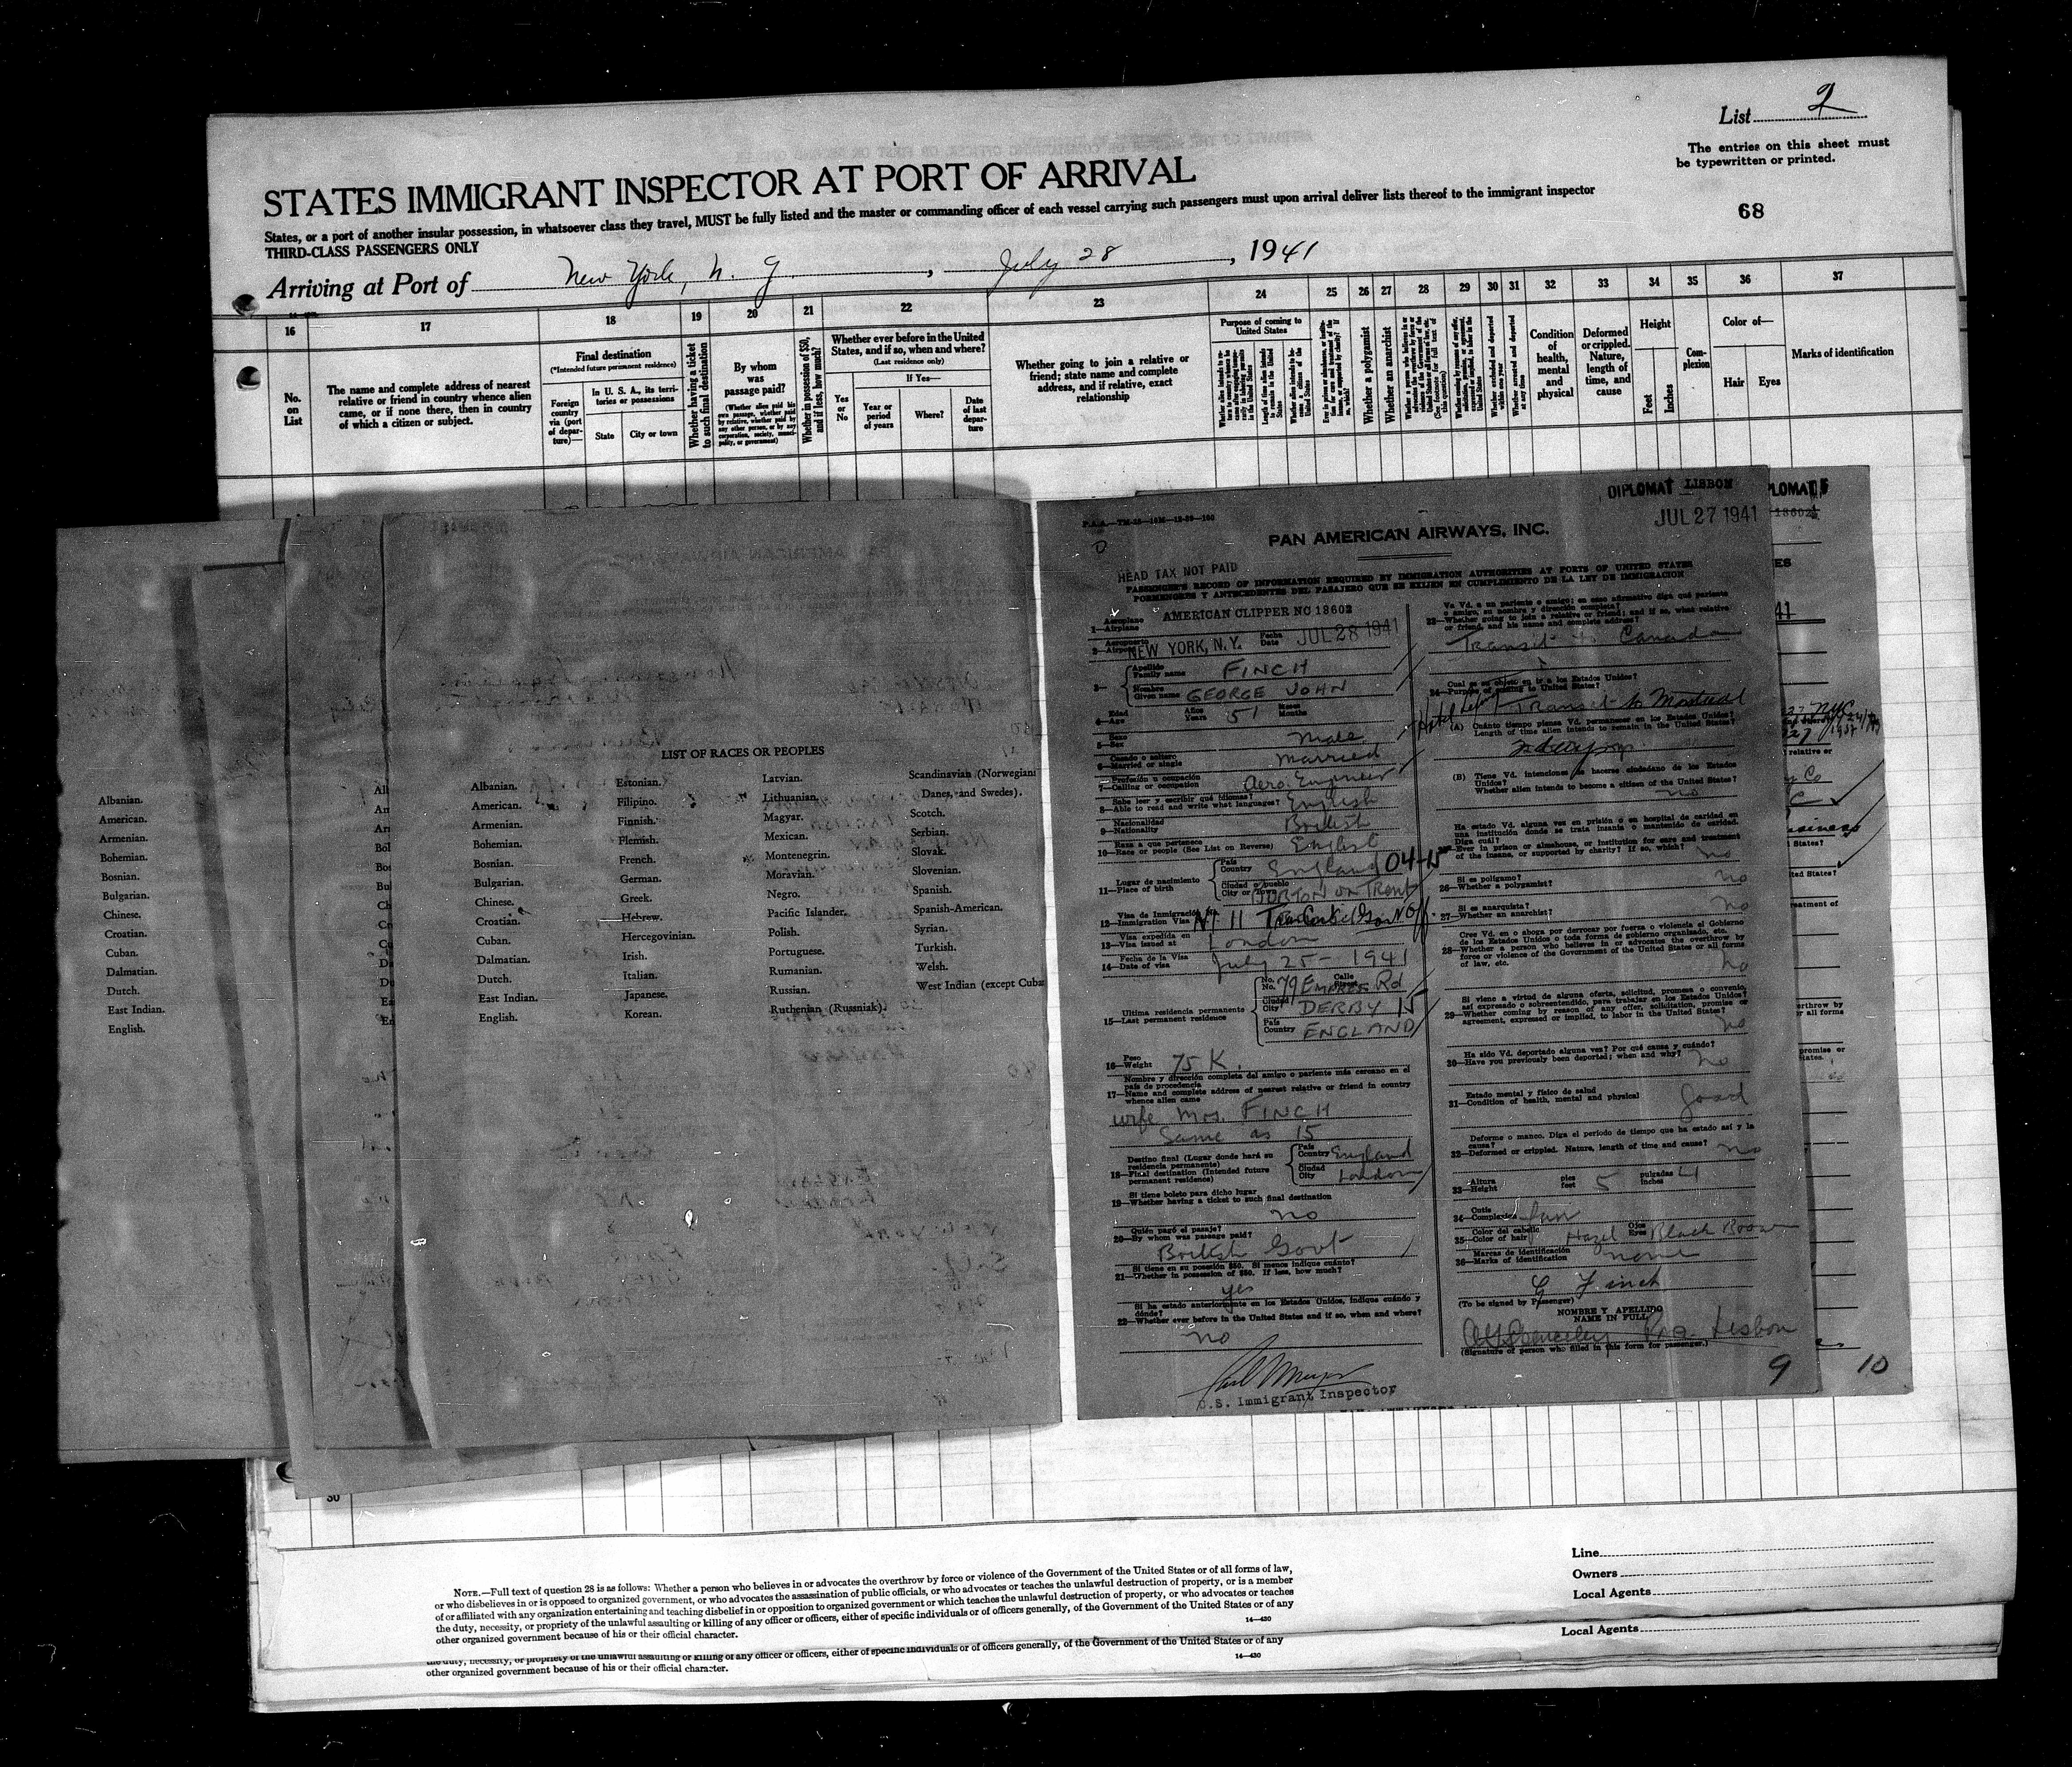 List 2
The entries on this sheet must
be typewritten or printed.
STATES IMMIGRANT INSPECTOR AT PORT OF ARRIVAL
States, or a port of another insular possession, in whatsoever class they travel, MUST be fully listed and the master or commanding officer of each vessel carrying such passengers must upon arrival deliver lists thereof to the immigrant inspector
68
THIRD-CLASS PASSENGERS ONLY
Arriving at Port of New York, N. Y., July 28, 1941
16 17 18 19 20 21 22 23 24 25 26 27 28 29 30 31 32 33 34 35 36 37
No.
on
List
The name and complete address of nearest
relative or friend in country whence alien
came, or if none there, then in country
of which a citizen or subject.
Final destination
(*Intended future permanent residence)
Foreign
country
via (port
of depar-
ture)—
In U. S. A., its terri-
tories or possessions
State
City or town
Whether having a ticket
to such final destination
By whom
was
passage paid?
(Whether alien paid his
own passage, whether paid
by relative, whether paid by
any other person, or by any
corporation, society, munici-
pality, or government)
Whether in possession of $50,
and if less, how much?
Whether ever before in the United
States, and if so, when and where?
(Last residence only)
Yes
or
No
If Yes—
Year or
period
of years
Where?
Date
of last
depar-
ture
Whether going to join a relative or
friend; state name and complete
address, and if relative, exact
relationship
Purpose of coming to
United States
Whether a polygamist
Whether an anarchist
Whether excluded and deported
within one year
Whether arrested and deported
at any time
Condition
of
health,
mental
and
physical
Deformed
or crippled.
Nature,
length of
time, and
cause
Height
Feet
Inches
Com-
plexion
Color of—
Hair
Eyes
Marks of identification
LIST OF RACES OR PEOPLES
Albanian.
American.
Armenian.
Bohemian.
Bosnian.
Bulgarian.
Chinese.
Croatian.
Cuban.
Dalmatian.
Dutch.
East Indian.
English.
Albanian.
American.
Armenian.
Bohemian.
Bosnian.
Bulgarian.
Chinese.
Croatian.
Cuban.
Dalmatian.
Dutch.
East Indian.
English.
Estonian.
Filipino.
Finnish.
Flemish.
French.
German.
Greek.
Hebrew.
Hercegovinian.
Irish.
Italian.
Japanese.
Korean.
Latvian.
Lithuanian.
Magyar.
Mexican.
Montenegrin.
Moravian.
Negro.
Pacific Islander.
Polish.
Portuguese.
Rumanian.
Russian.
Ruthenian (Russniak).
Scandinavian (Norwegian
Danes, and Swedes).
Scotch.
Serbian.
Slovak.
Slovenian.
Spanish.
Spanish-American.
Syrian.
Turkish.
Welsh.
West Indian (except Cuba
DIPLOMAT LISBON
JUL 27 1941
PAN AMERICAN AIRWAYS, INC.
HEAD TAX NOT PAID
PASSENGER'S RECORD OF INFORMATION REQUIRED BY IMMIGRATION AUTHORITIES AT PORTS OF UNITED STATES
PORMENORES Y ANTECEDENTES DEL PASAJERO QUE SE EXIJEN EN CUMPLIMIENTO DE LA LEY DE IMMIGRACION
Aeroplano
1—Airplane AMERICAN CLIPPER NC 18602
Aeropuerto
2—Airport NEW YORK, N.Y. Fecha
Date JUL 28 1941
3— Apellido
Family name FINCH
Nombre
Given name GEORGE JOHN
Edad
4—Age Años
Years 51 Meses
Months
Sexo
5—Sex Male
Casado o soltero
6—Married or single Married
Profesión u ocupación
7—Calling or occupation Aero. Engineer
Sabe leer y escribir qué idiomas?
8—Able to read and write what languages? English
Nacionalidad
9—Nationality British
Raza a que pertenece
10—Race or people (See List on Reverse) English
Lugar de nacimiento
11—Place of birth País
Country England 04-15
Ciudad o pueblo
City or Town BURTON ON TRENT
Visa de Inmigración
12—Immigration Visa
Visa expedida en
13—Visa issued at London
Fecha de la Visa
14—Date of visa July 25 - 1941
Ultima residencia permanente
15—Last permanent residence No.
No. 79 Calle
EMPRESS Rd
Ciudad
City DERBY 15
País
Country ENGLAND
Peso
16—Weight 75 K.
Nombre y dirección completa del amigo o pariente más cercano en el
país de procedencia
17—Name and complete address of nearest relative or friend in country
whence alien came
wife Mrs. FINCH
Same as 15
Destino final (Lugar donde hará su
residencia permanente)
18—Final destination (Intended future
permanent residence) País
Country England
Ciudad
City London
Si tiene boleto para dicho lugar
19—Whether having a ticket to such final destination
no
Quién pagó el pasaje?
20—By whom was passage paid?
British Govt
Si tiene en su posesión $50. Si menos indique cuánto?
21—Whether in possession of $50. If less, how much?
yes
Si ha estado anteriormente en los Estados Unidos, indique cuándo y
dónde?
22—Whether ever before in the United States and if so, when and where?
no
U.S. Immigrant Inspector
Va Vd. a un pariente o amigo; en caso afirmativo diga qué pariente
o amigo, su nombre y dirección completa?
23—Whether going to join a relative or friend; and if so, what relative
or friend, and his name and complete address?
Transit to Canada
Cual es su objeto en ir a los Estados Unidos?
24—Purpose of coming to United States?
Transit to Montreal
(A) Cuánto tiempo piensa Vd. permanecer en los Estados Unidos?
Length of time alien intends to remain in the United States?
(B) Tiene Vd. intenciones de hacerse ciudadano de los Estados
Unidos?
Whether alien intends to become a citizen of the United States?
no
Ha estado Vd. alguna vez en prisión o en hospital de caridad en
una institución donde se trata insania o mantenido de caridad.
Diga cuál?
25—Ever in prison or almshouse, or institution for care and treatment
of the insane, or supported by charity? If so, which? no
Si es polígamo?
26—Whether a polygamist? no
Si es anarquista?
27—Whether an anarchist? no
Cree Vd. en o aboga por derrocar por fuerza o violencia al Gobierno
de los Estados Unidos o toda forma de gobierno organizado, etc.
28—Whether a person who believes in or advocates the overthrow by
force or violence of the Government of the United States or all forms
of law, etc. no
Si viene a virtud de alguna oferta, solicitud, promesa o convenio,
así expresado o sobreentendido, para trabajar en los Estados Unidos?
29—Whether coming by reason of any offer, solicitation, promise or
agreement, expressed or implied, to labor in the United States? no
Ha sido Vd. deportado alguna vez? Por qué causa y cuándo?
30—Have you previously been deported; when and why? no
Estado mental y físico de salud
31—Condition of health, mental and physical good
Deforme o manco. Diga el período de tiempo que ha estado así y la
causa?
32—Deformed or crippled. Nature, length of time and cause? no
Altura
33—Height pies
feet 5 pulgadas
inches 4
Cutis
34—Complexion
Color del cabello
35—Color of hair Hazel Ojos
Eyes Black Brown
Marcas de identificación
36—Marks of identification none
G Finch
(To be signed by Passenger)
NOMBRE Y APELLIDO
NAME IN FULL
Lisbon
(Signature of person who filled in this form for passenger.)
9
10
30
NOTE.—Full text of question 28 is as follows: Whether a person who believes in or advocates the overthrow by force or violence of the Government of the United States or of all forms of law,
or who disbelieves in or is opposed to organized government, or who advocates the assassination of public officials, or who advocates or teaches the unlawful destruction of property, or is a member
of or affiliated with any organization entertaining and teaching disbelief in or opposition to organized government or which teaches the unlawful destruction of property, or who advocates or teaches
the duty, necessity, or propriety of the unlawful assaulting or killing of any officer or officers, either of specific individuals or of officers generally, of the Government of the United States or of any
other organized government because of his or their official character.
14—430
the duty, necessity, or propriety of the unlawful assaulting or killing of any officer or officers, either of specific individuals or of officers generally, of the Government of the United States or of any
other organized government because of his or their official character.
14—430
Line
Owners
Local Agents
Local Agents